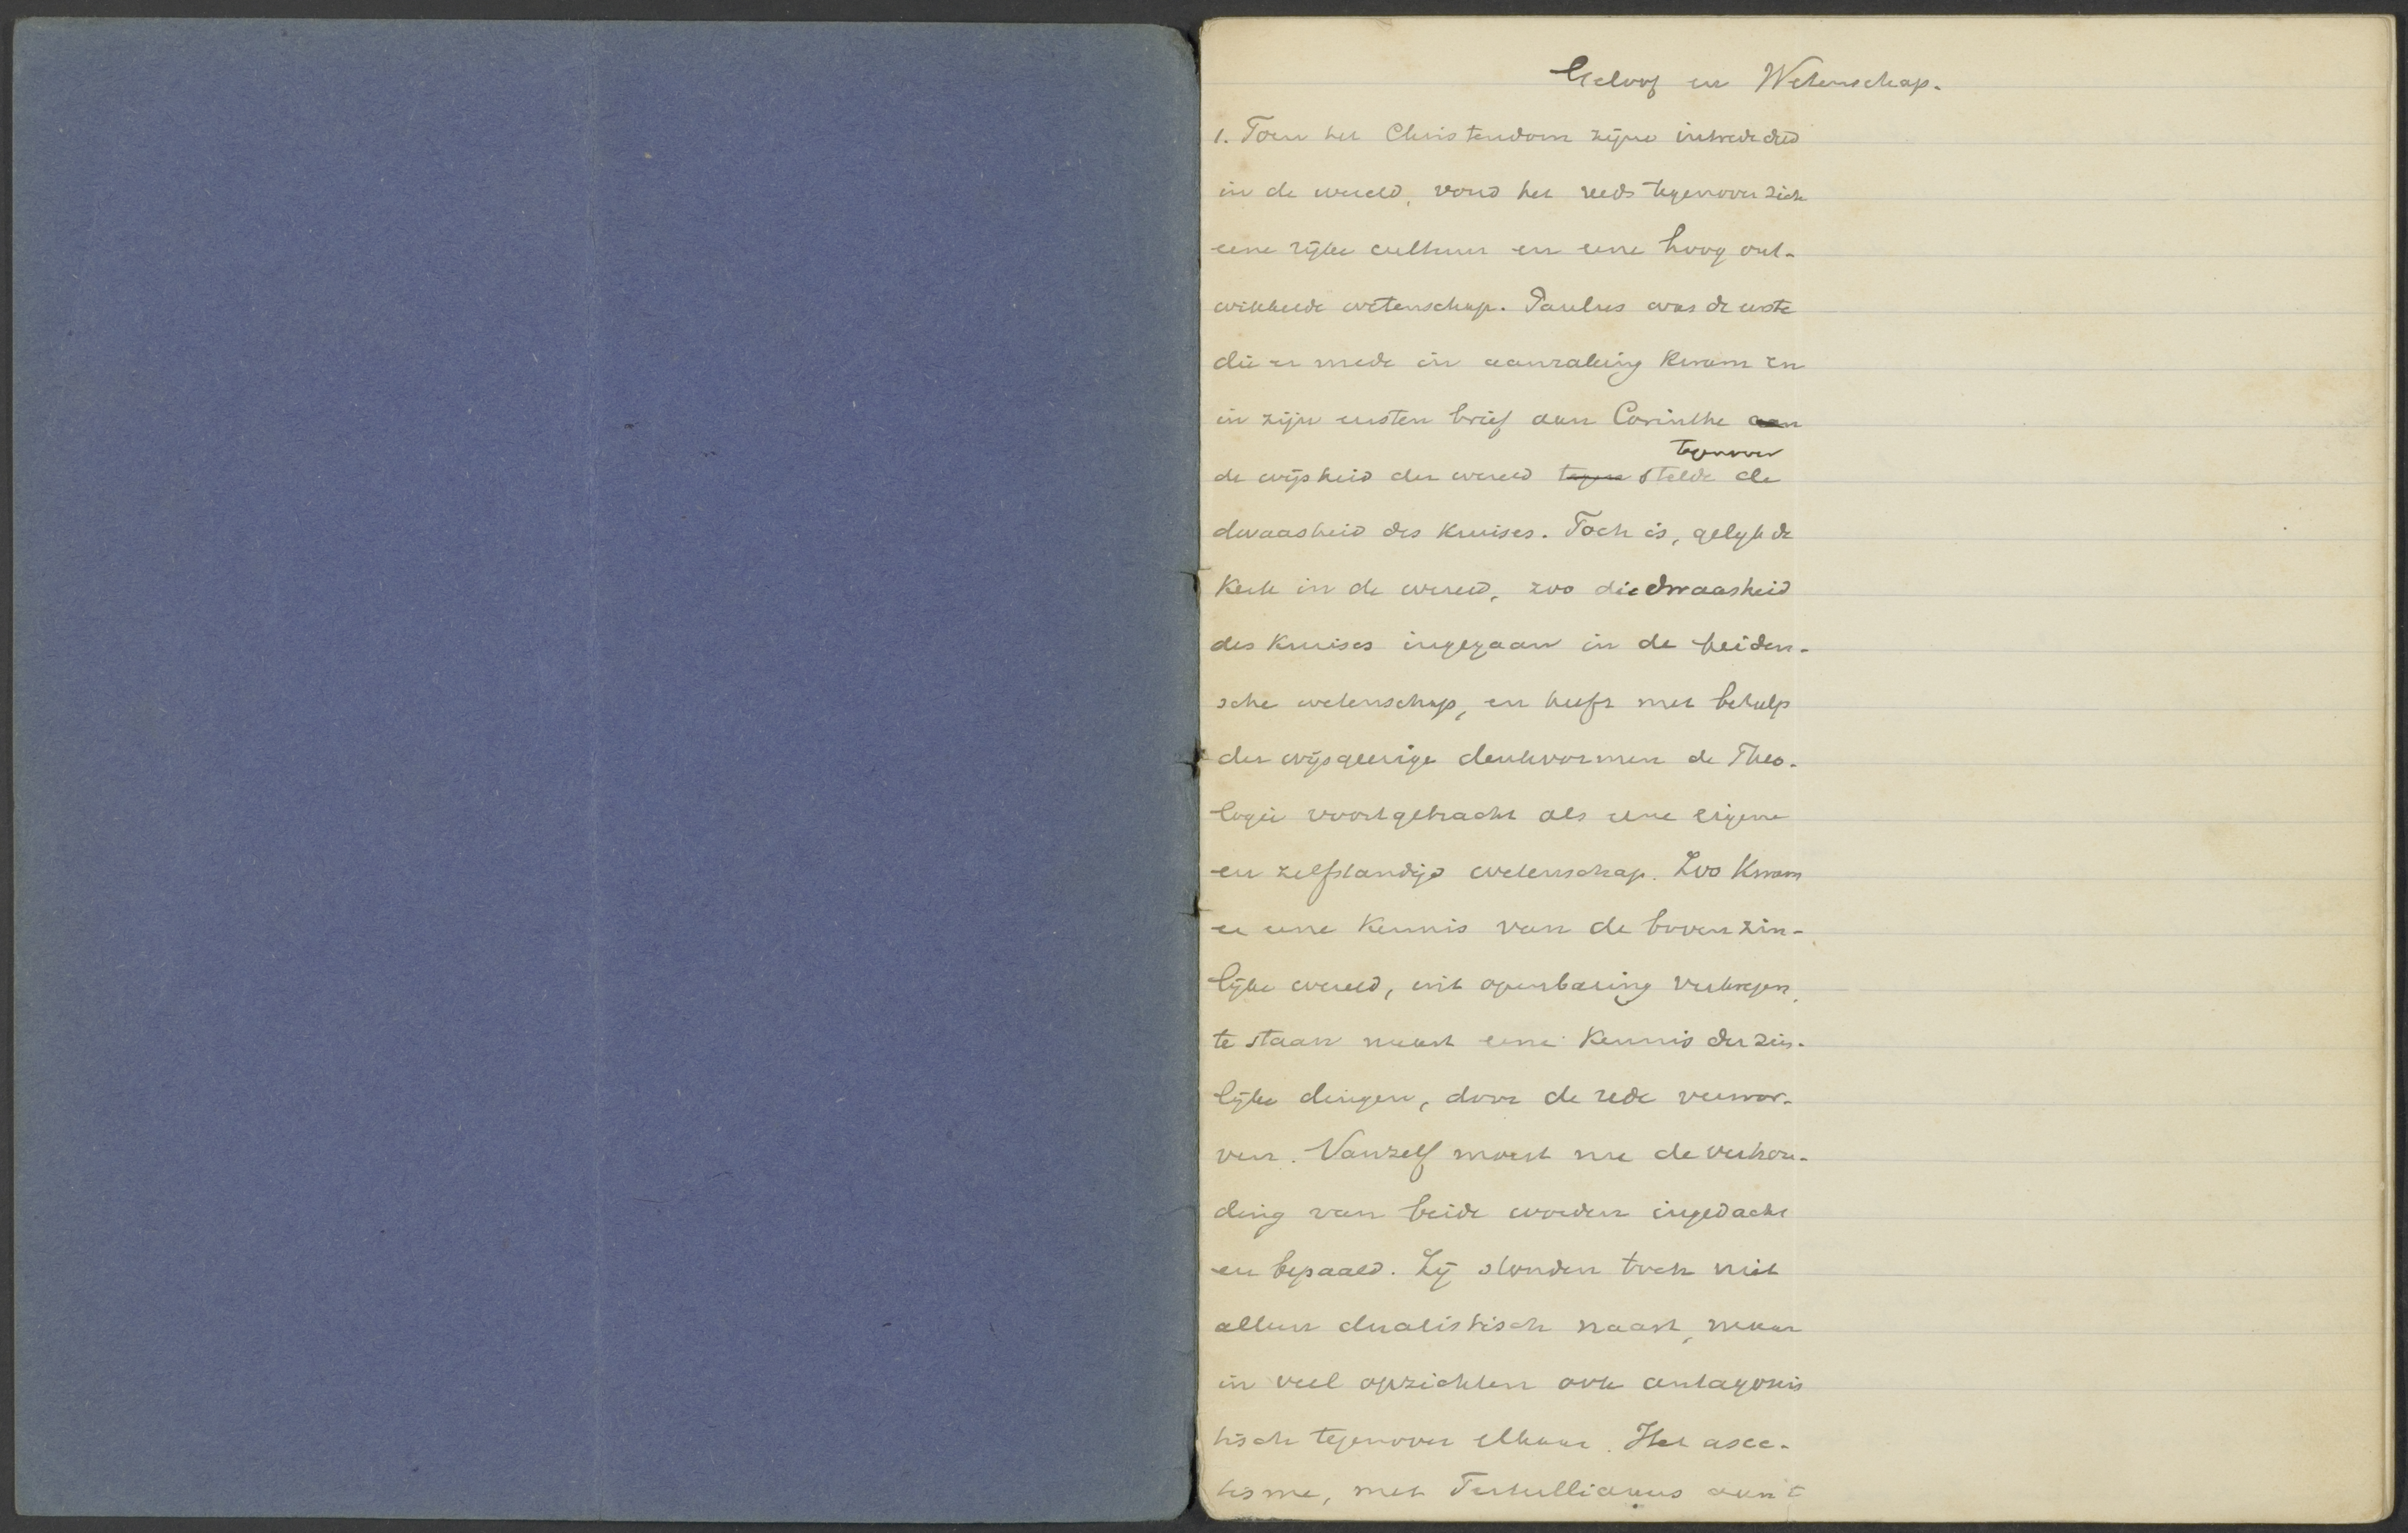 Geloof en Wetenschap.
1. Toen het Christendom zijne intrede deed
in de wereld, vond het reeds tegenover zich
eene rijke cultuur en eene hoog ont-
wikkelde wetenschap. Paulus was de eerste
die er mede in aanraking kwam en
in zijn eersten brief aan Corinthe aan
tegenover
de wijsheid der wereld tegen stelde de
dwaasheid des Kruises. Toch is, gelijk de
Kerk in de wereld, zoo die dwaasheid
des Kruises ingegaan in de heiden-
sche wetenschap, en heeft met behulp
der wijsgeerige denkvormen de Theo-
logie voortgebracht als eene eigene
en zelfstandige wetenschap. Zoo Kwam
er eene Kennis van de bovenzin-
lijke wereld, uit openbaring verkregen,
te staan naast eene Kennis der zin-
lijke dingen, door de rede verwor-
ven. Vanzelf moest nu de verhou-
ding van beide worden ingedacht
en bepaald. Zij stonden toch niet
alleen dualistisch naast, maar
in veel opzichten ook antagonis
tisch tegenover elkaar. Het asce-
tisme, met Tertullianus aan 't